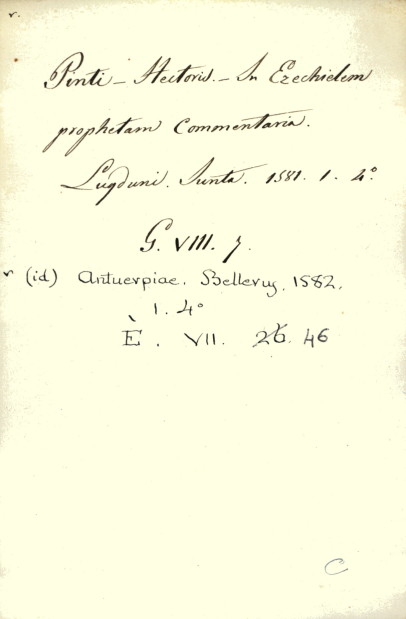 v.
Pinti – Hectoris. – In Ezechielem
prophetam Commentaria.
Lugduni. Junta. 1581. 1. 4°.
G. VIII. 7.
v (id) Antuerpiae. Bellerus, 1582.
1. 4°
È. VII. 26. 46
C